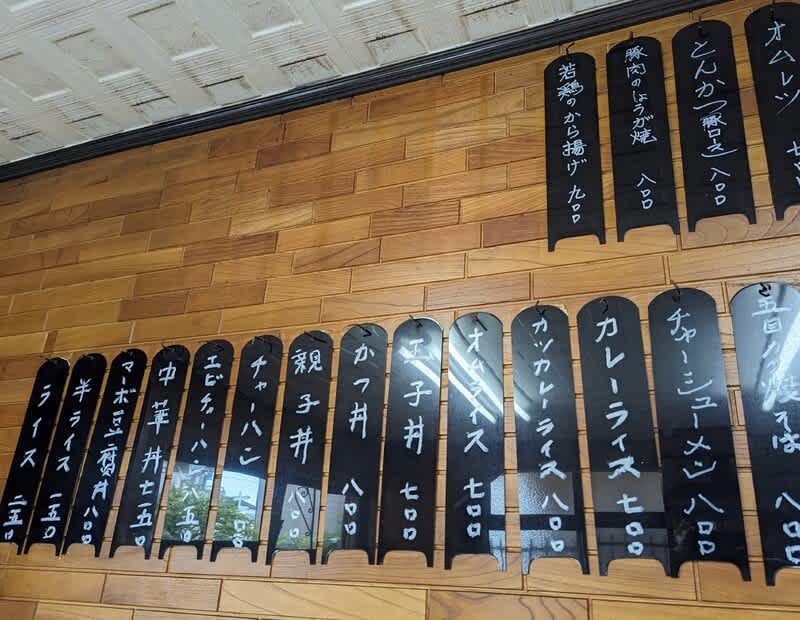 オムレツ
とんかつ(豚ロース) 八〇〇
豚肉のしょうが焼 八〇〇
若鶏のから揚げ 九〇〇
焼そば 八〇〇
チャーシューメン 八〇〇
カレーライス 七〇〇
カツカレーライス 八〇〇
オムライス 七〇〇
玉子丼 七〇〇
かつ丼 八〇〇
親子丼 八〇〇
チャーハン 七〇〇
エビチャーハン 八五〇
中華丼 七五〇
マーボ豆腐丼 八〇〇
半ライス 一五〇
ライス 二五〇